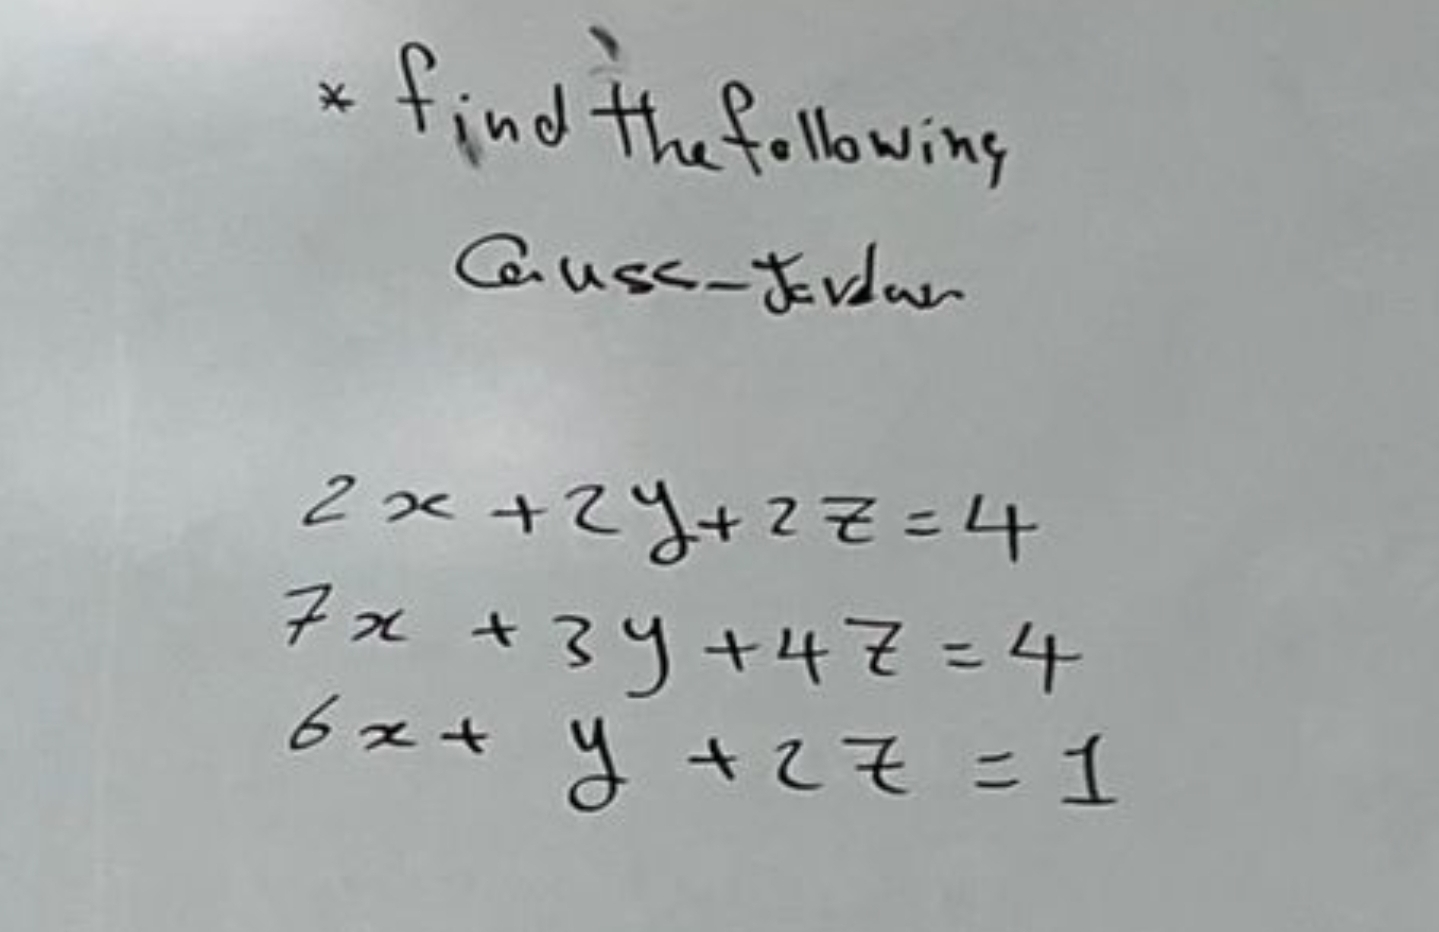 * find the following
Gauss-Jordan
2x + 2y + 2z = 4
7x + 3y + 4z = 4
6x + y + 2z = 1